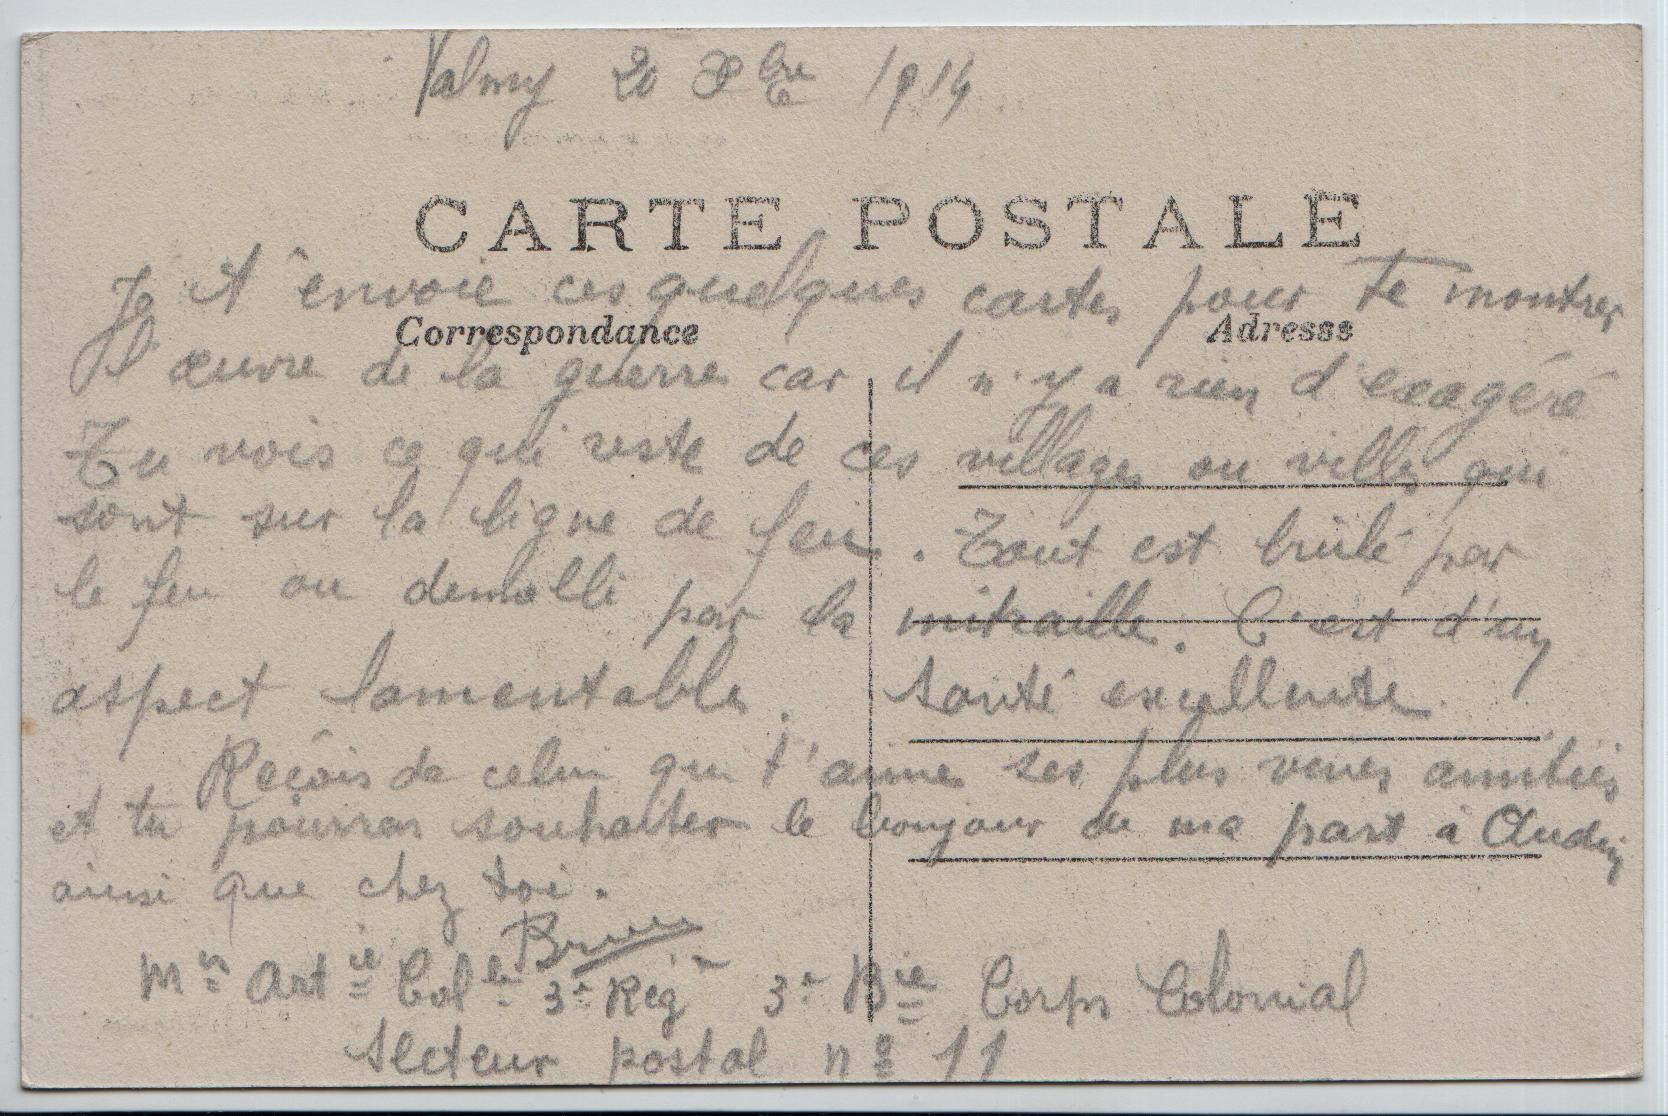 Valmy 20 Xbre 1914
CARTE POSTALE
Je t'envoie ces quelques cartes pour te montrer
Correspondance
Adresse
l'œuvre de la guerre car il n'y a rien d'exagéré
Tu vois ce qui reste de ces villages ou villes qui
sont sur la ligne de feu. Tout est brûlé par
le feu ou demolli par la mitraille. C'est d'un
aspect lamentable. Santé excellente.
Reçois de celui qui t'aime ses plus vives amitiés
et tu pourras souhaiter le bonjour de ma part à Audin
ainsi que chez toi.
Brun
Art ie Col le 3e Reg 3e Bie Corps Colonial
Secteur postal nº 11